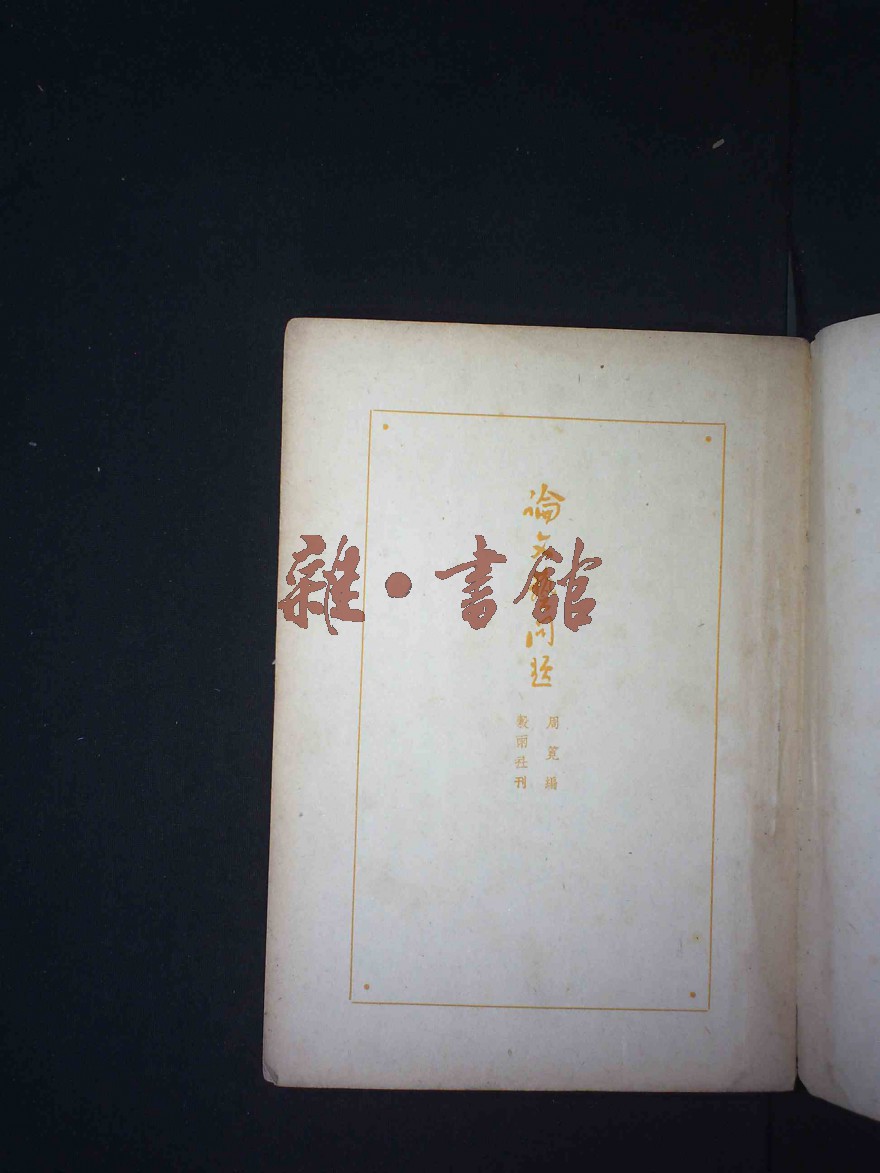 論文問題
周筧編
穀雨社刊
雜·書館